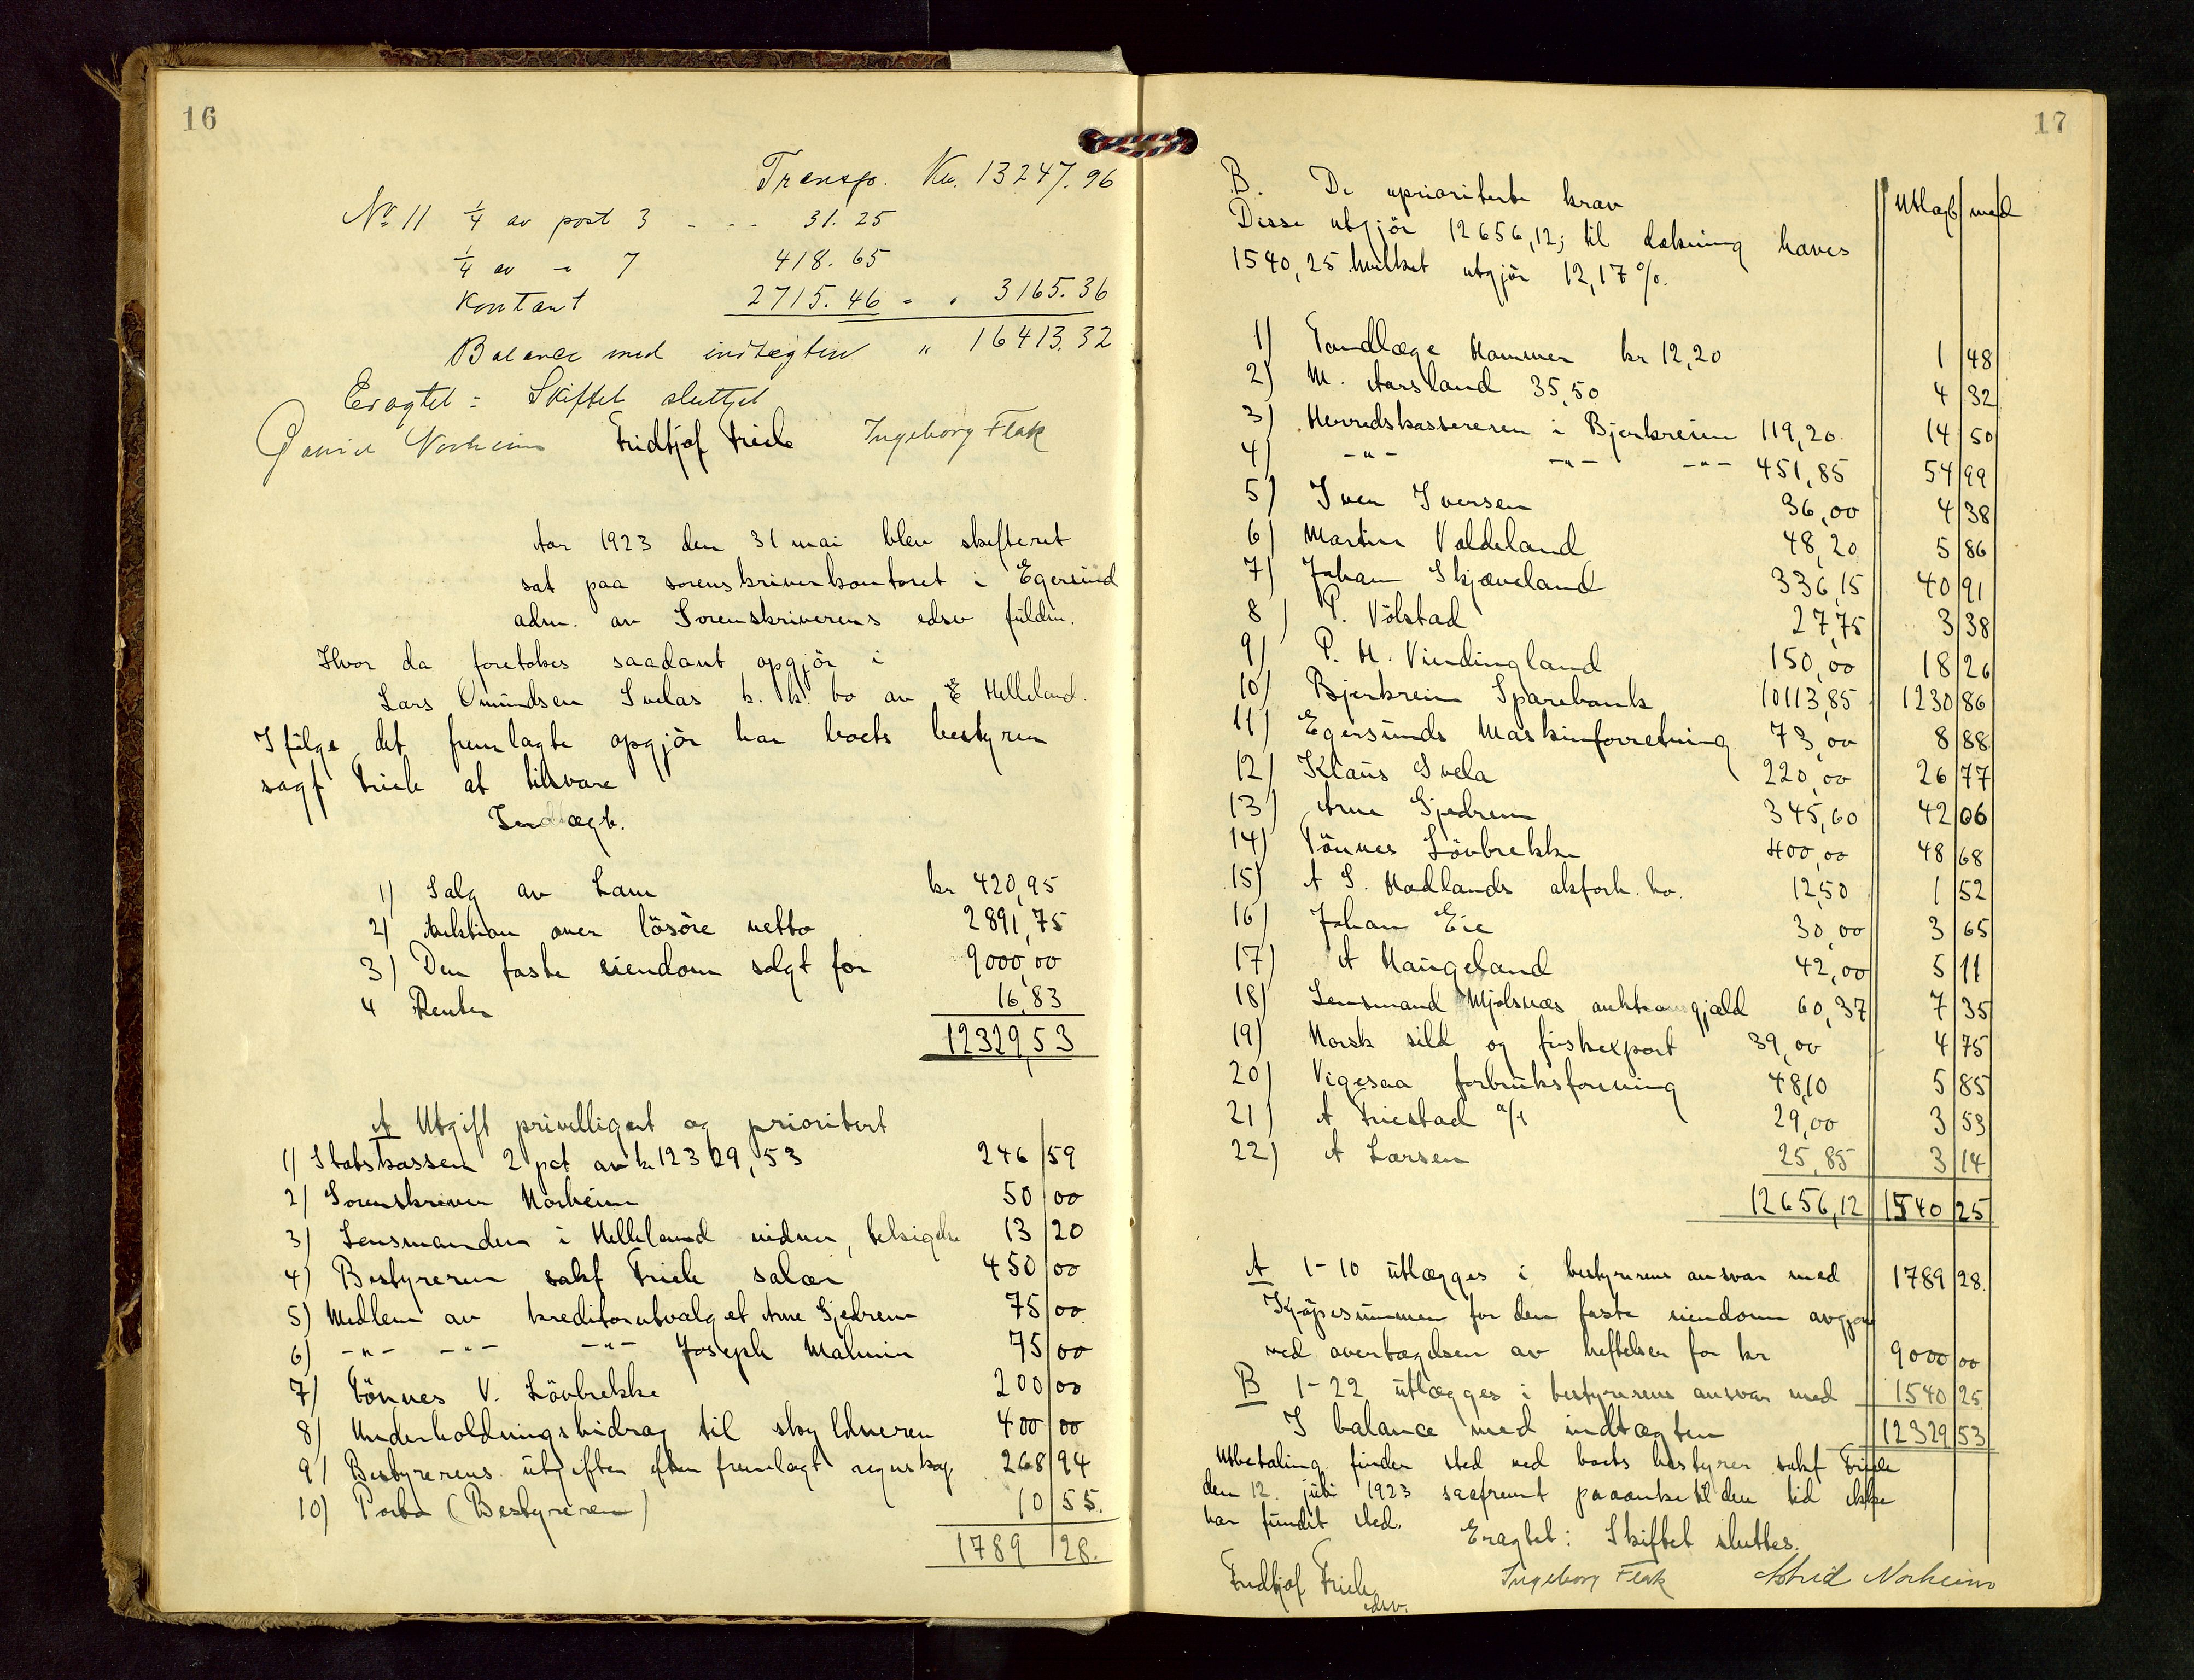 16
Transp. Kr. 13247.96
No 11 1/4 av post 3 - - - 31.25
1/4 av - " 7 418.65
Kontant 2715.46 - . 3165.36
Balance med indtægten " 16413.32
Eragtet: Skiftet sluttet
Norheim Fridtjof Friele Ingeborg Flak
Aar 1923 den 31 mai blev skifteret
sat paa sorenskriverkontoret i Egersund
adm. av Sorenskriverens edsv fuldm.
Hvor da foretokes saadant opgjör i
Lars Omundsen Svelas k. k. bo av E Helleland.
Ifölge det fremlagte opgjör har boets bestyrer
sagf Friele at tilsvare
Indtægt.
1) Salg av Lam kr 420,95
2) Auktion over lösöre netto 2891,75
3) Den faste eiendom solgt for 9000,00
4 Renter 16,83
12329,53
A Utgift privilligert og prioritert
1) Statskassen 2 pct av kr 12329,53 246/59
2) Sorenskriver Norheim 50/00
3) Lensmanden i Helleland vidner, 13/20
4) Bestyreren sakf Friele salær 450/00
5) Medlem av kreditorutvalget Arne Gjedrem 75/00
6) -"- -"- -"- Joseph Malmin 75/00
7) Tönnes V. Lövbrekke 200/00
8) Underholdningsbidrag til skyldneren 400/00
9) Bestyrerens utgifter efter fremlagt regnskap 268/94
10) Porto (Bestyreren) 10/55.
1789/28.
17
B. De uprioriterte krav Utlagt med
Disse utgjör 12656,12; til dækning haves
1540,25 hvilket utgjör 12,17%.
1) Tandlæge Hammer kr 12,20 1/48
2) M. Aarsland 35,50 4/32
3) Herredskassereren i Bjerkreim 119,20 14/50
4) -"- -"- -"- 451,85 54/99
5) Iver Iversen 36,00 4/38
6) Martin Valdeland 48,20 5/86
7) Johan Skjæveland 336,15 40/91
8) T. Völstad 27,75 3/38
9) P. H. Vindingland 150,00 18/26
10) Bjerkreim Sparebank 10113,85 1230/86
11) Egersunds Maskinforretning 73,00 8/88
12) Klaus Svela 220,00 26/77
13) Arne Gjedrem 345,60 42/06
14) Tönnes Lövbrekke 400,00 48/68
15) A S. Hadlands akforh. bo. 12,50 1/52
16) Johan Eie 30,00 3/65
17) A Haugeland 42,00 5/11
18) Lensmand Mjølsnæs auktionsgjæld 60,37 7/35
19) Norsk sild og fiskexport 39,00 4/75
20) Vigesaa forbruksforening 48,10 5/85
21) A Friestad a/s 29,00 3/53
22) A Larsen 25,85 3/14
12656,12 1540/25
A 1-10 utlægges i bestyrerens ansvar med 1789/28.
Kjöpesummen for den faste eiendom avgjort
ved overtagelsen av heftelser for kr 9000/00
B 1-22 utlægges i bestyrerens ansvar med 1540/25
I balance med indtægten 12329/53
Utbetaling finder sted ved boets bestyrer sakf Friele
den 12. juli 1923 saafremt paaanke til den tid ikke
har fundet sted. Eragtet: Skiftet sluttes.
Fridtjof Friele Ingeborg Flak Astrid Norheim
edsv.